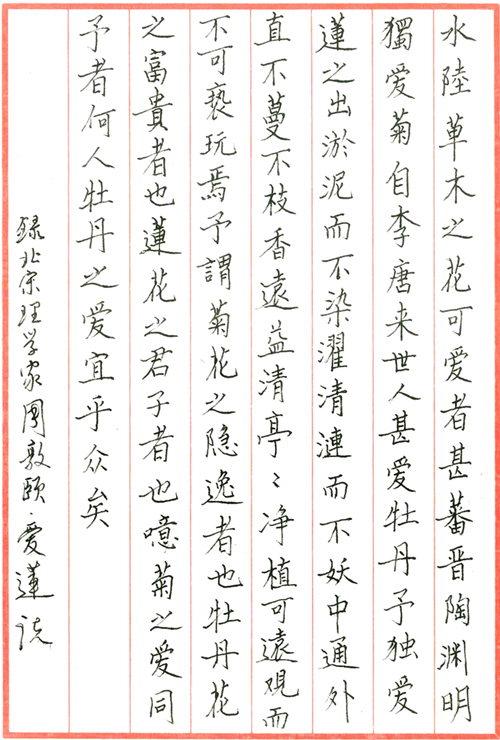 水陸草木之花可爱者甚蕃晋陶渊明
獨爱菊自李唐来世人甚爱牡丹予独爱
蓮之出淤泥而不染濯清漣而不妖中通外
直不蔓不枝香遠益清亭〻净植可遠观而
不可亵玩焉予謂菊花之隐逸者也牡丹花
之富貴者也蓮花之君子者也噫菊之爱同
予者何人牡丹之爱宜乎众矣
録北宋理学家周敦颐·爱蓮说